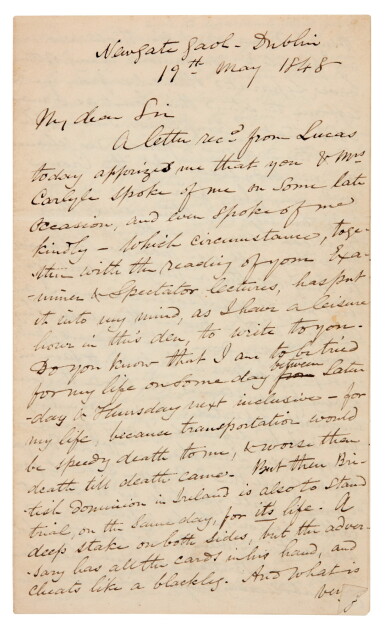 Newgate Gaol - Dublin
19th May 1848
My dear Sir
A letter recd. from Lucas
today apprizes me that you & Mrs
Carlyle spoke of me on some late
occasion, and even spoke of me
kindly - which circumstance, toge-
ther with the reading of your Exa-
-miner & Spectator lectures, has put
it into my mind, as I have a leisure
hour in this den, to write to you.
Do you know that I am to be tried
for my life on some day from between Satur
-day & Thursday next inclusive - for
my life, because transportation would
be speedy death to me, & worse than
death till death came. But then Bri-
tish Dominion in Ireland is also to stand
trial, on the same day, for its life. A
deep stake on both sides, but the adver-
sary has all the cards in his hand, and
cheats like a blackleg. And what is
very